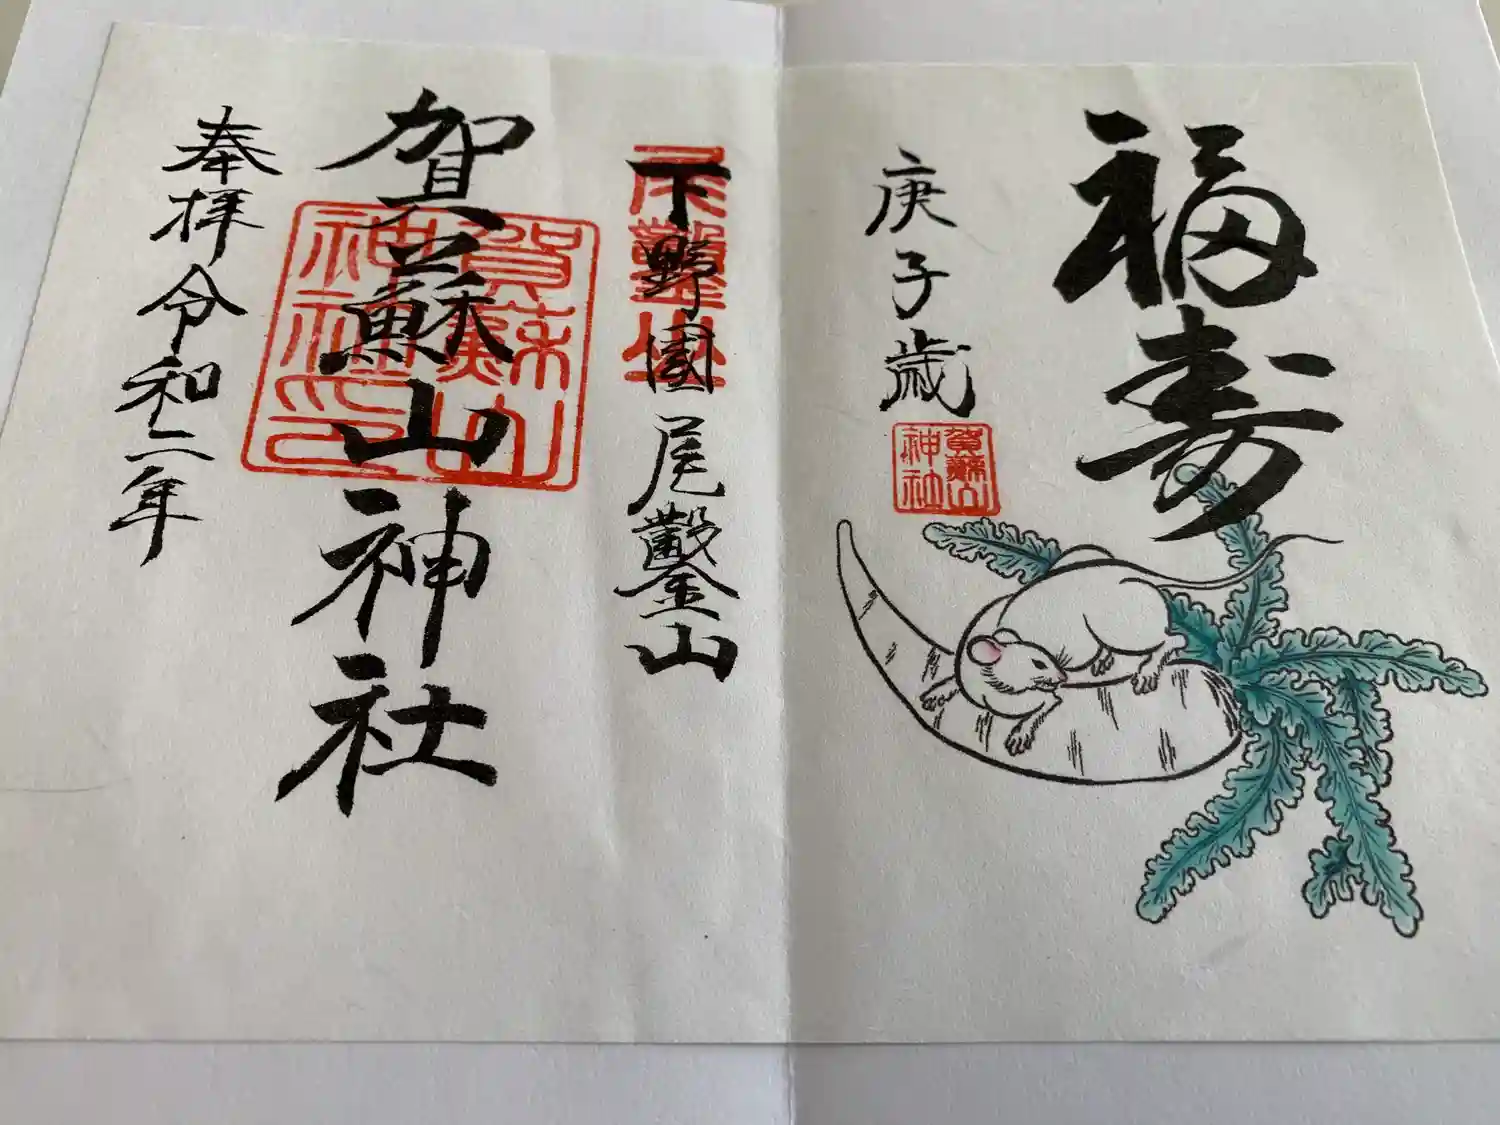 福寿
庚子歳
賀蘇山神社
下野國尾鑿山
尾鑿山
賀蘇山神社
賀蘇山神社神印
奉拝令和二年